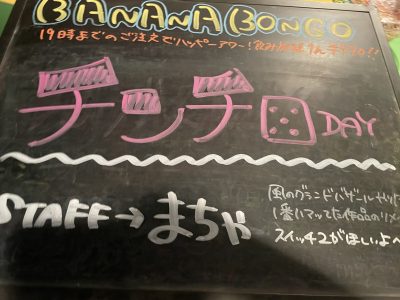 BANANA BONGO
19時までのご注文でハッピーアワー!飲み放題
チンチロ DAY
STAFF→まちゃ
風のグランドバザール
1番ハマってた作品のリメ
スイッチ2がほしいよ〜